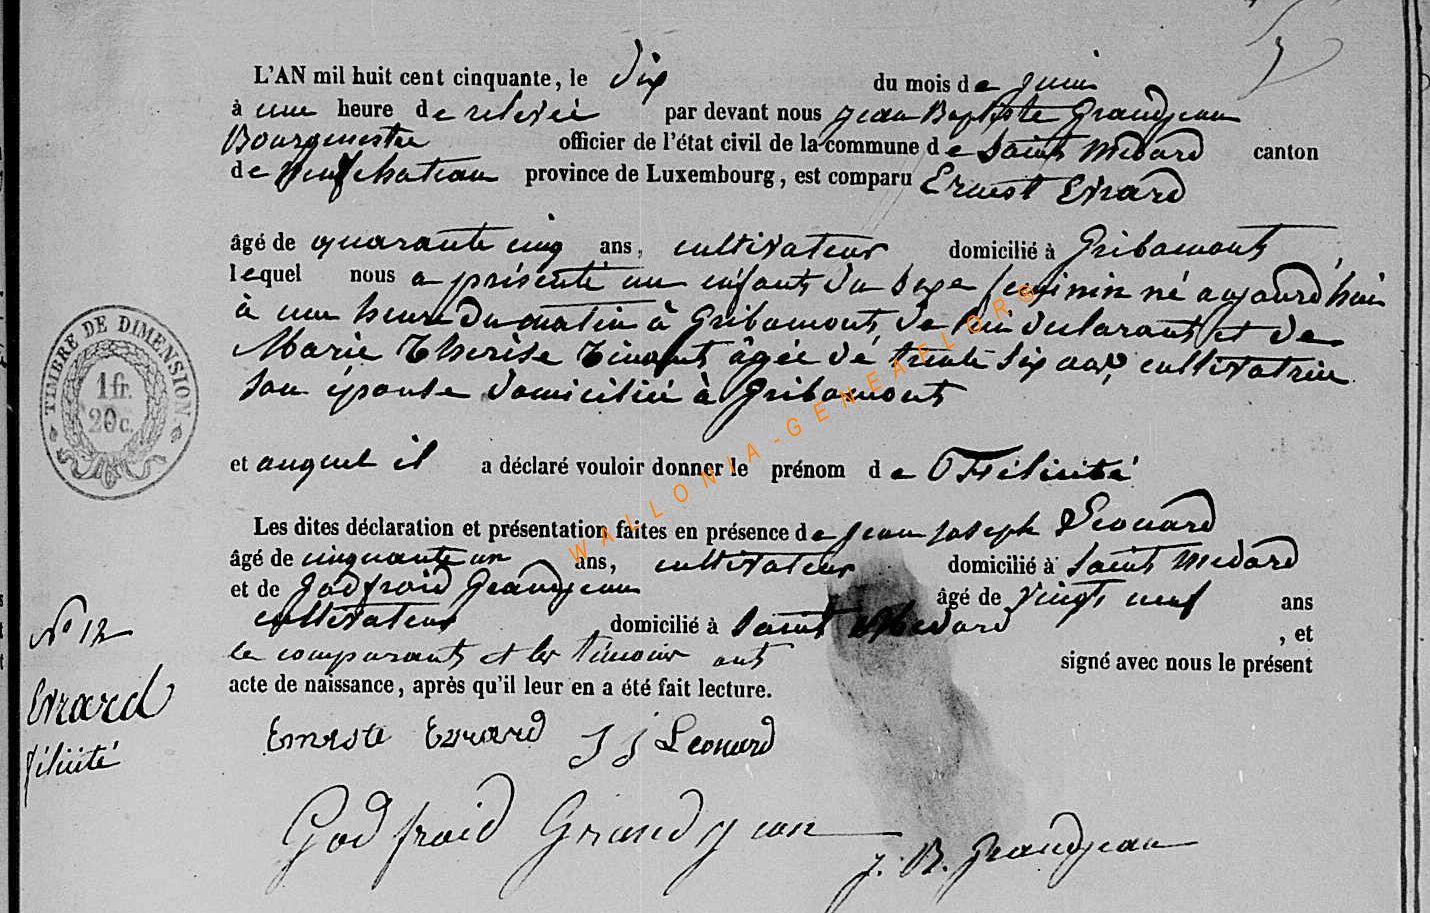 L'AN mil huit cent cinquante, le dix du mois de juin
à une heure de relevée par devant nous Jean Baptiste Grandjean
Bourgmestre officier de l'état civil de la commune de Saint Médard canton
de Neufchateau province de Luxembourg, est comparu Ernest Evrard
âgé de quarante cinq ans, cultivateur domicilié à Gribomont
lequel nous a présenté un enfant du sexe féminin né aujourd'hui
à une heure du matin à Gribomont de lui déclarant et de
Marie Thérèse âgée de trente six ans cultivatrice
son épouse domiciliée à Gribomont
et auquel il a déclaré vouloir donner le prénom de Félicité
Les dites déclaration et présentation faites en présence de Jean Joseph Léonard
âgé de cinquante un ans, cultivateur domicilié à Saint Médard
et de Godfroid Grandjean âgé de vingt neuf ans
cultivateur domicilié à Saint Médard , et
le comparant et les témoins ont signé avec nous le présent
acte de naissance, après qu'il leur en a été fait lecture.
Erneste Evrard J J Leonard
Godfroid Grandjean J. B. Grandjean
N° 12
Evrard
félicité
TIMBRE DE DIMENSION
1 fr.
20 c.
WALLONIA-GENEAFLORS